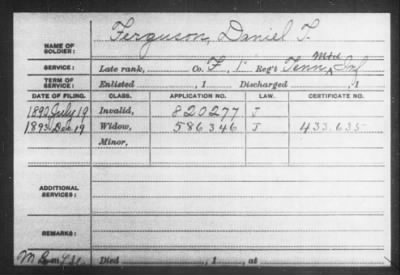 Ferguson, Daniel T.
NAME OF SOLDIER:
SERVICE: Late rank, Co. F, 1 Reg't Tenn. Mtd Inf
TERM OF SERVICE: Enlisted , 1 Discharged , 1
DATE OF FILING. CLASS. APPLICATION NO. LAW. CERTIFICATE NO.
1892 July 19 Invalid, 820277 J
1893 Dec 19 Widow, 586346 J 433.635
Minor,
ADDITIONAL SERVICES:
REMARKS:
Died , 1 , at